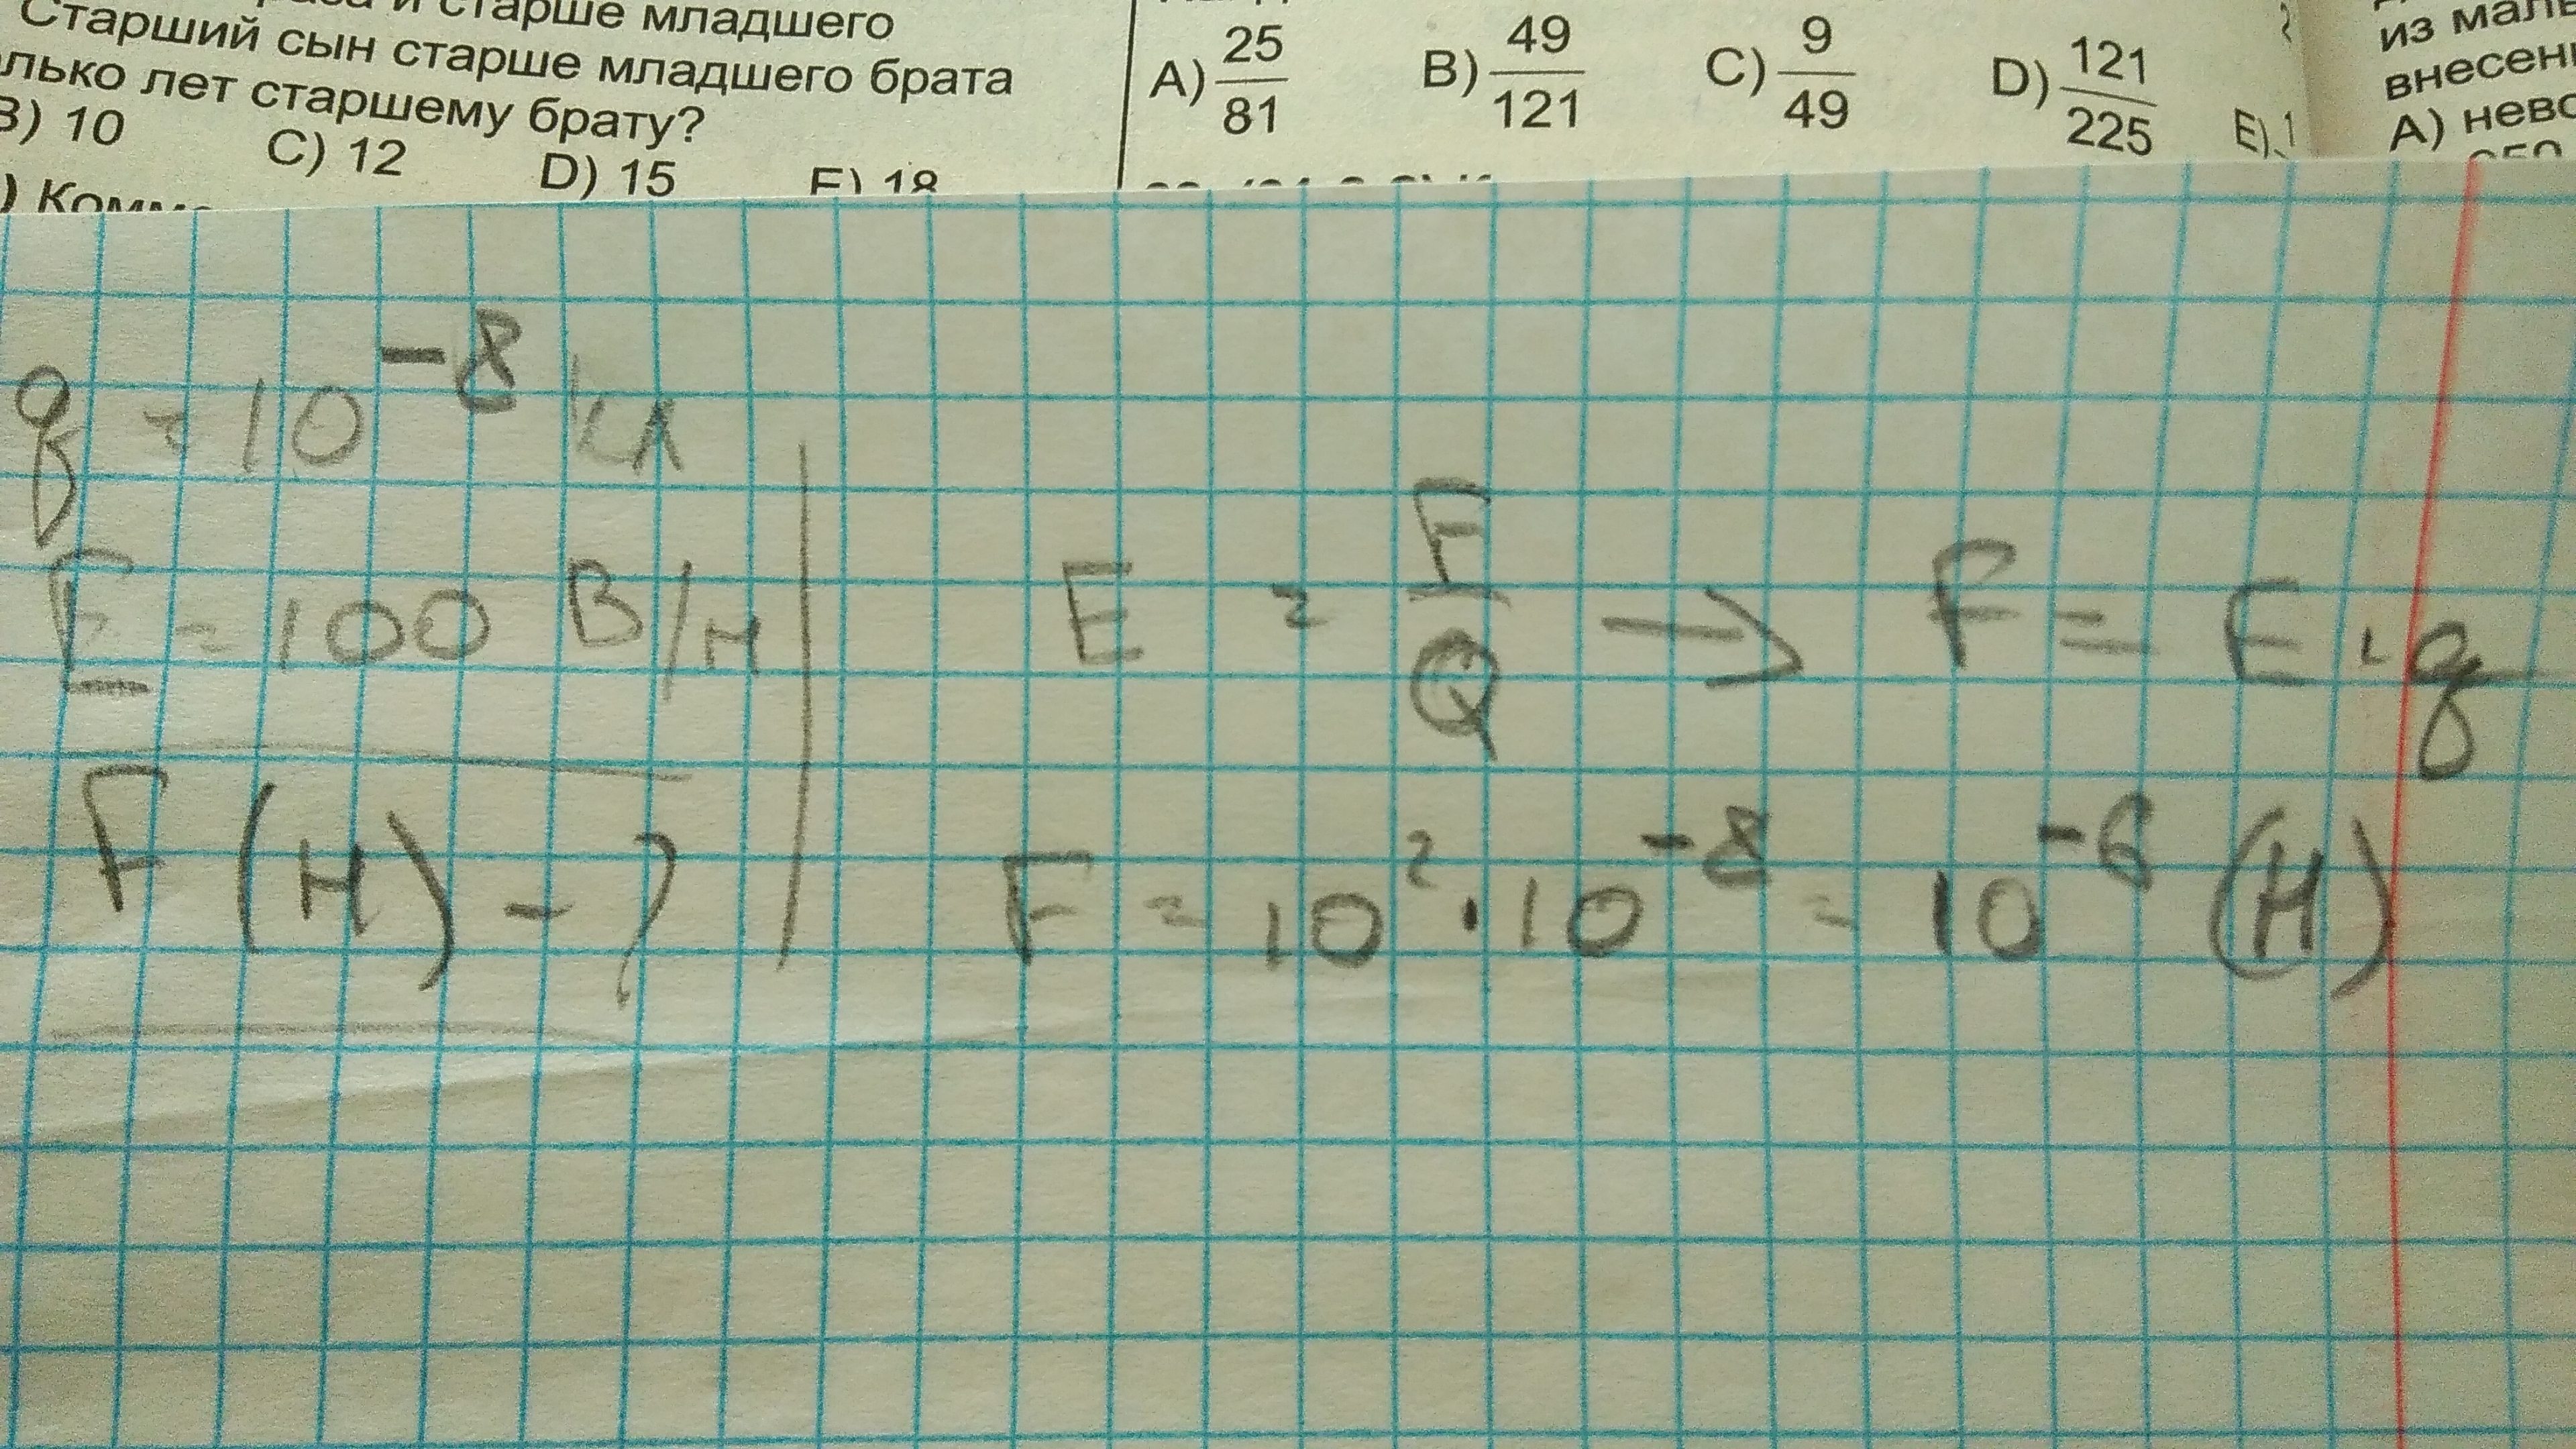 и старше младшего
Старший сын старше младшего брата
лько лет старшему брату?
B) 10 C) 12 D) 15 E) 18
A) 25/81 B) 49/121 C) 9/49 D) 121/225 E) 1
из
внесен
A)
q = 10⁻⁸ Кл
E = 100 В/н
F (н) - ?
E = F/Q → F = E · q
F = 10² · 10⁻⁸ = 10⁻⁶ (Н)